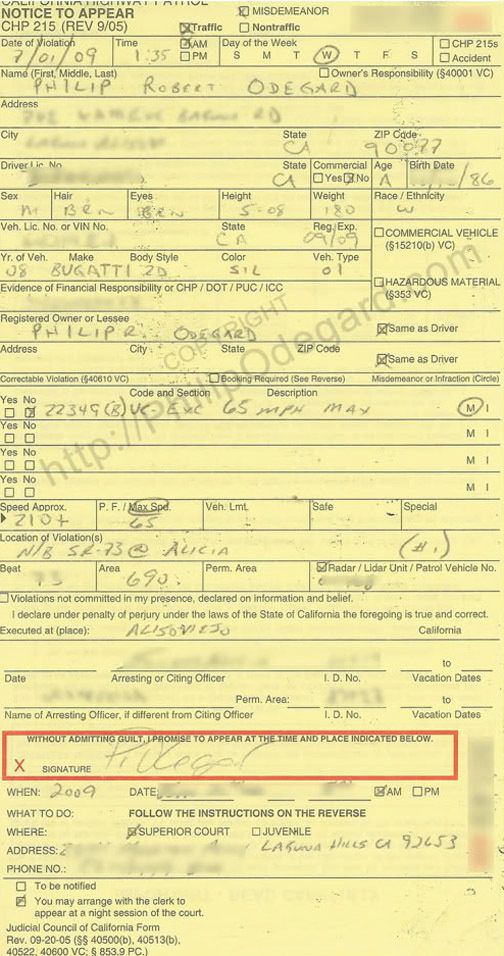 CALIFORNIA HIGHWAY PATROL
NOTICE TO APPEAR MISDEMEANOR
CHP 215 (REV 9/05) Traffic Nontraffic
Date of Violation Time AM Day of the Week CHP 215s
7/01/09 1:35 PM S M T W T F S Accident
Name (First, Middle, Last) Owner's Responsibility (§40001 VC)
PHILIP ROBERT ODEGARD
Address
City State ZIP Code
CA
Driver Lic. No. State Commercial Age Birth Date
CA Yes No /86
Sex Hair Eyes Height Weight Race / Ethnicity
M BRN BRN 5-08 180 W
Veh. Lic. No. or VIN No. State Reg. Exp.
CA 09/09 COMMERCIAL VEHICLE
(§15210(b) VC)
Yr. of Veh. Make Body Style Color Veh. Type
08 BUGATTI 2D SIL 01
HAZARDOUS MATERIAL
(§353 VC)
Evidence of Financial Responsibility or CHP / DOT / PUC / ICC
Registered Owner or Lessee
PHILIP R. ODEGARD Same as Driver
Address City State ZIP Code
Same as Driver
Correctable Violation (§40610 VC) Booking Required (See Reverse) Misdemeanor or Infraction (Circle)
Yes No Code and Section Description
22349(B) VC- EXC 65 MPH MAX M I
Yes No
M I
Yes No
M I
Yes No
M I
Speed Approx. P. F. / Max Spd. Veh. Lmt. Safe Special
210+ 65
Location of Violation(s)
N/B SR-73 @ ALICIA (#1)
Beat Area Perm. Area Radar / Lidar Unit / Patrol Vehicle No.
73 690
Violations not committed in my presence, declared on information and belief.
I declare under penalty of perjury under the laws of the State of California the foregoing is true and correct.
Executed at (place): ALISO VIEJO California
to
Date Arresting or Citing Officer I. D. No. Vacation Dates
Perm. Area: to
Name of Arresting Officer, if different from Citing Officer I. D. No. Vacation Dates
WITHOUT ADMITTING GUILT, I PROMISE TO APPEAR AT THE TIME AND PLACE INDICATED BELOW.
X SIGNATURE
WHEN: 2009 DATE AM PM
WHAT TO DO: FOLLOW THE INSTRUCTIONS ON THE REVERSE
WHERE: SUPERIOR COURT JUVENILE
ADDRESS: LAGUNA HILLS CA 92653
PHONE NO.:
To be notified
You may arrange with the clerk to
appear at a night session of the court.
Judicial Council of California Form
Rev. 09-20-05 (§§ 40500(b), 40513(b),
40522, 40600 VC; § 853.9 PC.)
COPYRIGHT
http://PhilipOdegard.com